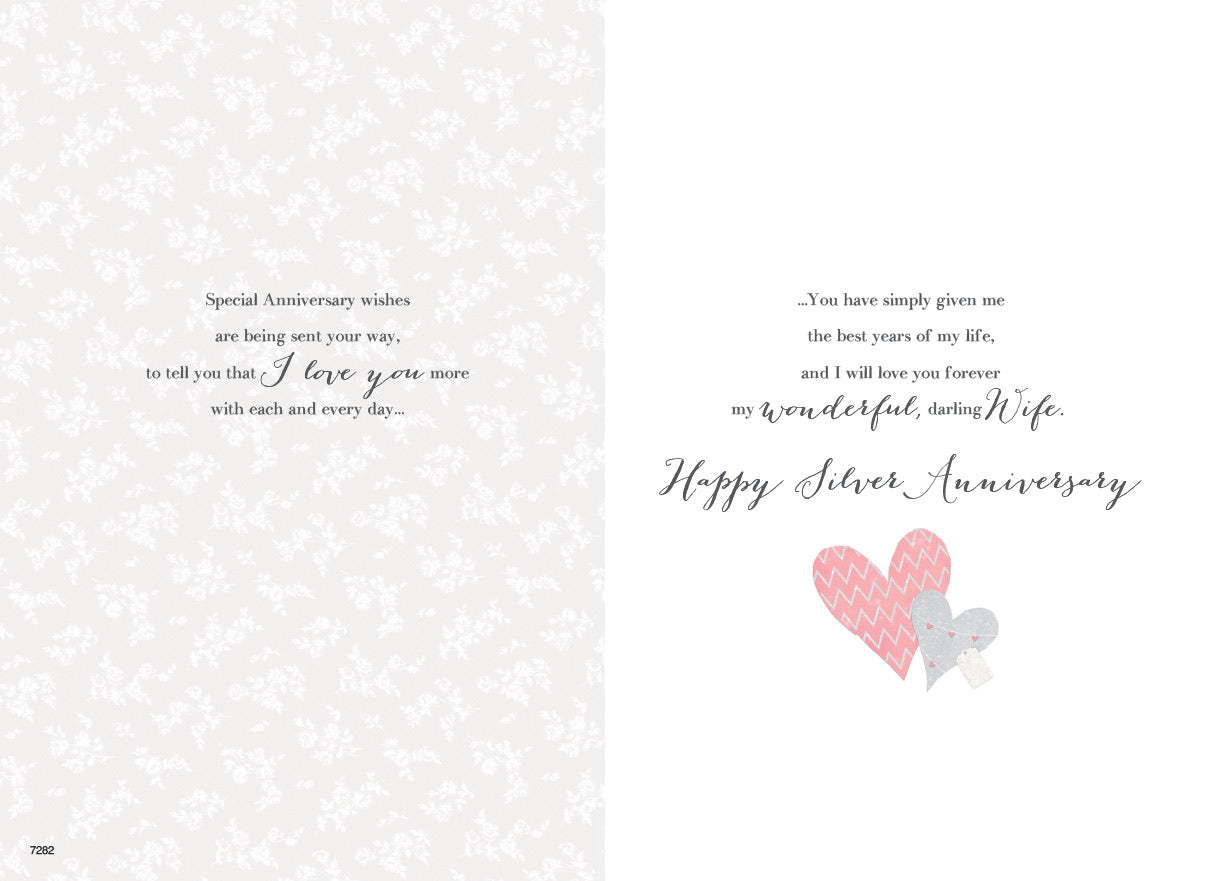 Special Anniversary wishes
are being sent your way,
to tell you that I love you more
with each and every day...
7282
...You have simply given me
the best years of my life,
and I will love you forever
my wonderful, darling Wife.
Happy Silver Anniversary